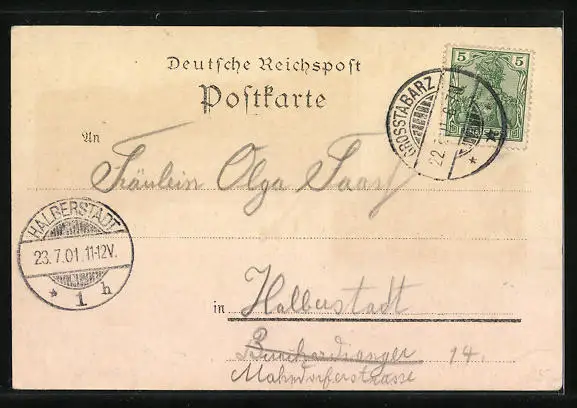 Deutsche Reichspost
Postkarte
5 5
GROSSTABARZ
22.
An
Fräulein Olga Saas
HALBERSTADT
23.7.01.11-12V.
* 1 h
in
Halberstadt
Burchardianger 14.
Mahndorferstrasse